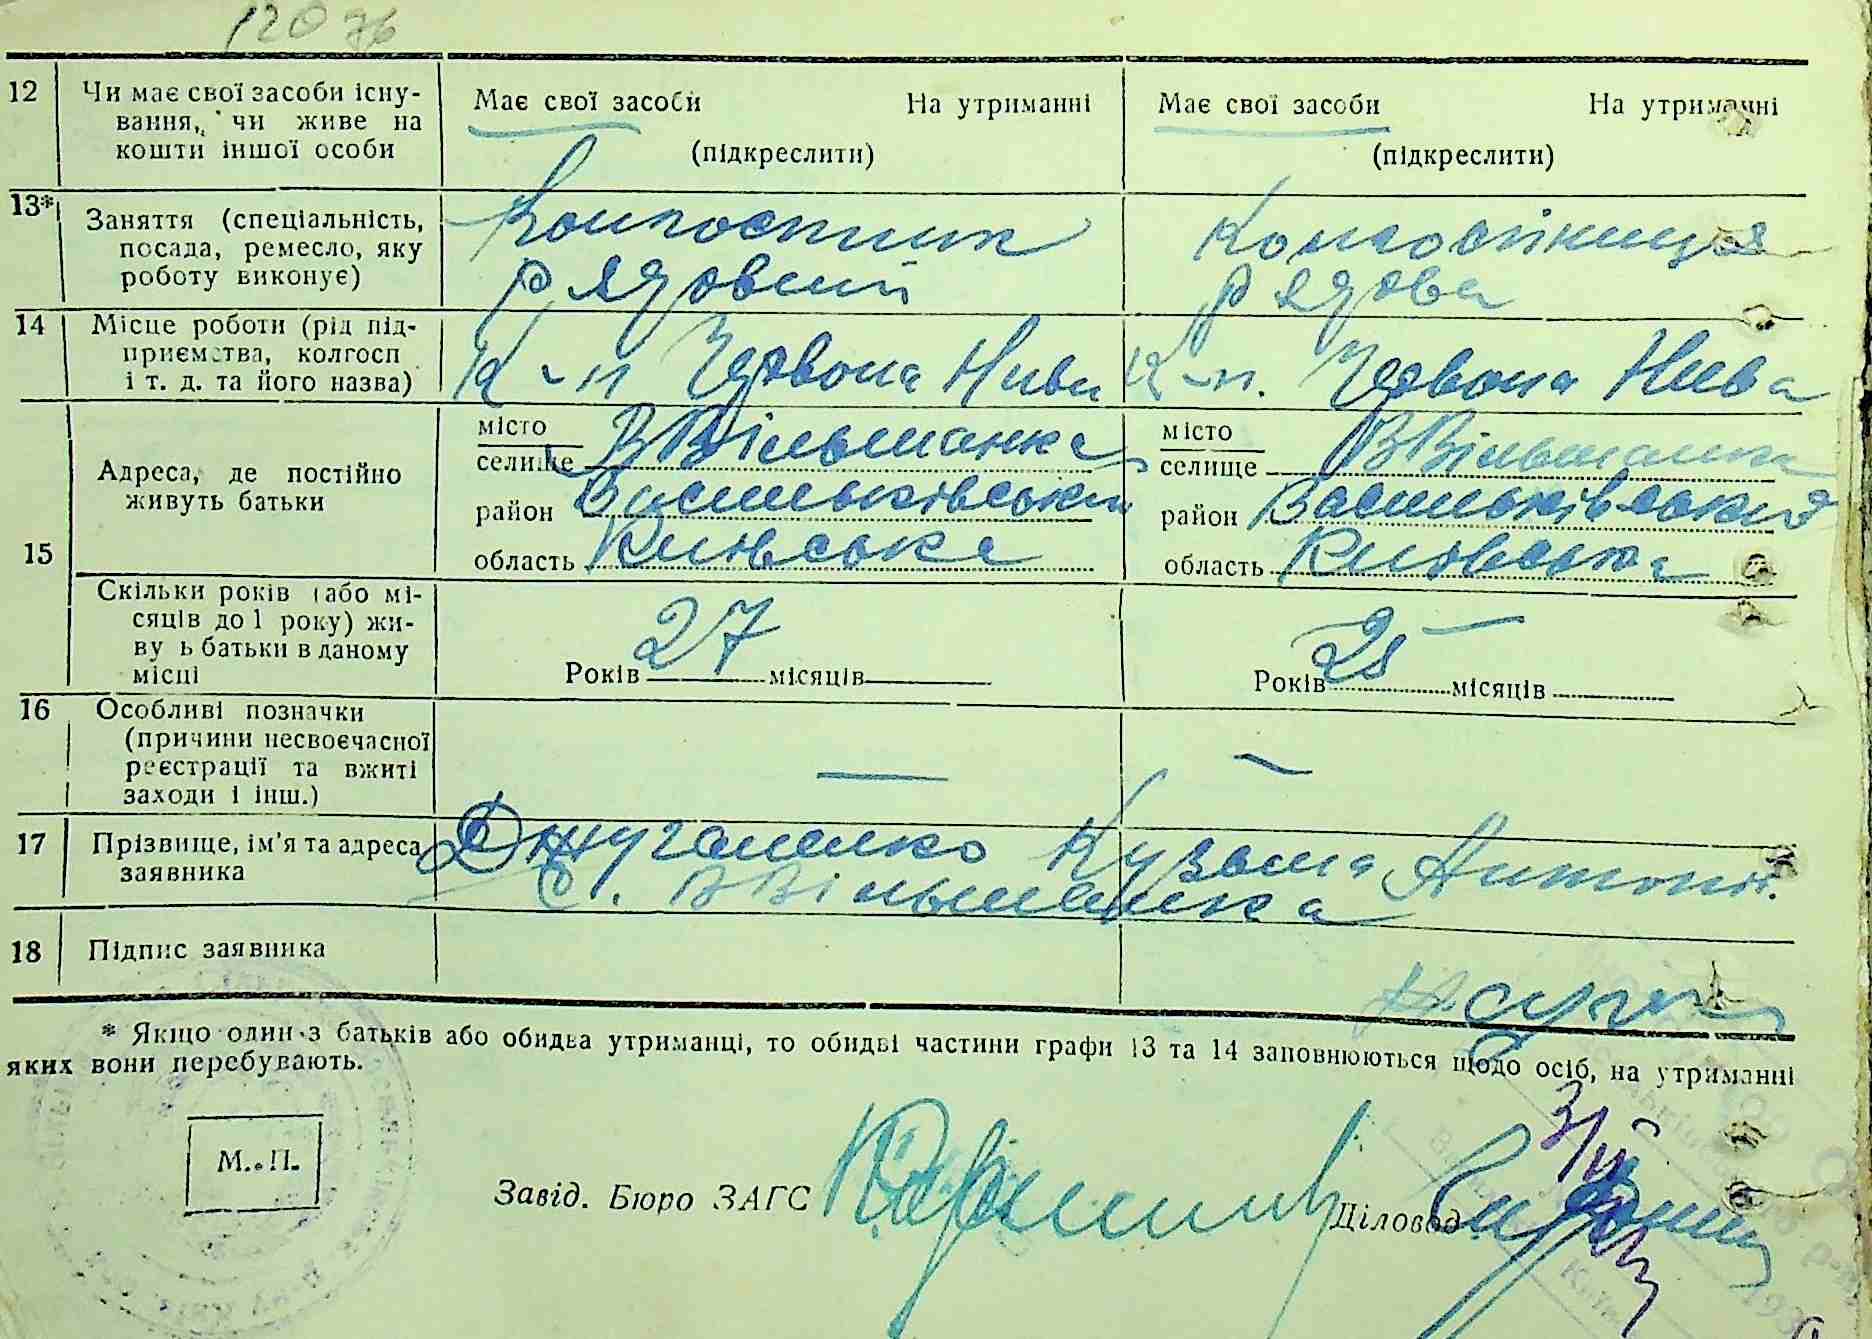 120 76
12 Чи має свої засоби існу-
вання, чи живе на
кошти іншої особи
Має свої засоби На утриманні
(підкреслити)
Має свої засоби На утриманні
(підкреслити)
13* Заняття (спеціальність,
посада, ремесло, яку
роботу виконує)
Колгоспник
рядовий
Колгоспниця
рядова
14 Місце роботи (рід під-
приємства, колгосп
і т. д. та його назва)
К-п Червона Нива
К-п. Червона Нива
15 Адреса, де постійно
живуть батьки
місто
селище В Вільшанка
район Васильківський
область Київська
місто
селище В Вільшанка
район Васильківський
область Київська
Скільки років (або мі-
сяців до 1 року) жи-
ву ь батьки в даному
місці
Років 27 місяців
Років 25 місяців
16 Особливі позначки
(причини несвоєчасної
реєстрації та вжиті
заходи і інш.)
— —
17 Прізвище, ім'я та адреса
заявника
Кузьма Антон.
с. В Вільшанка
18 Підпис заявника
* Якщо один з батьків або обидва утриманці, то обидві частини графи 13 та 14 заповнюються щодо осіб, на утриманні
яких вони перебувають.
М. П.
Завід. Бюро ЗАГС
Діловод